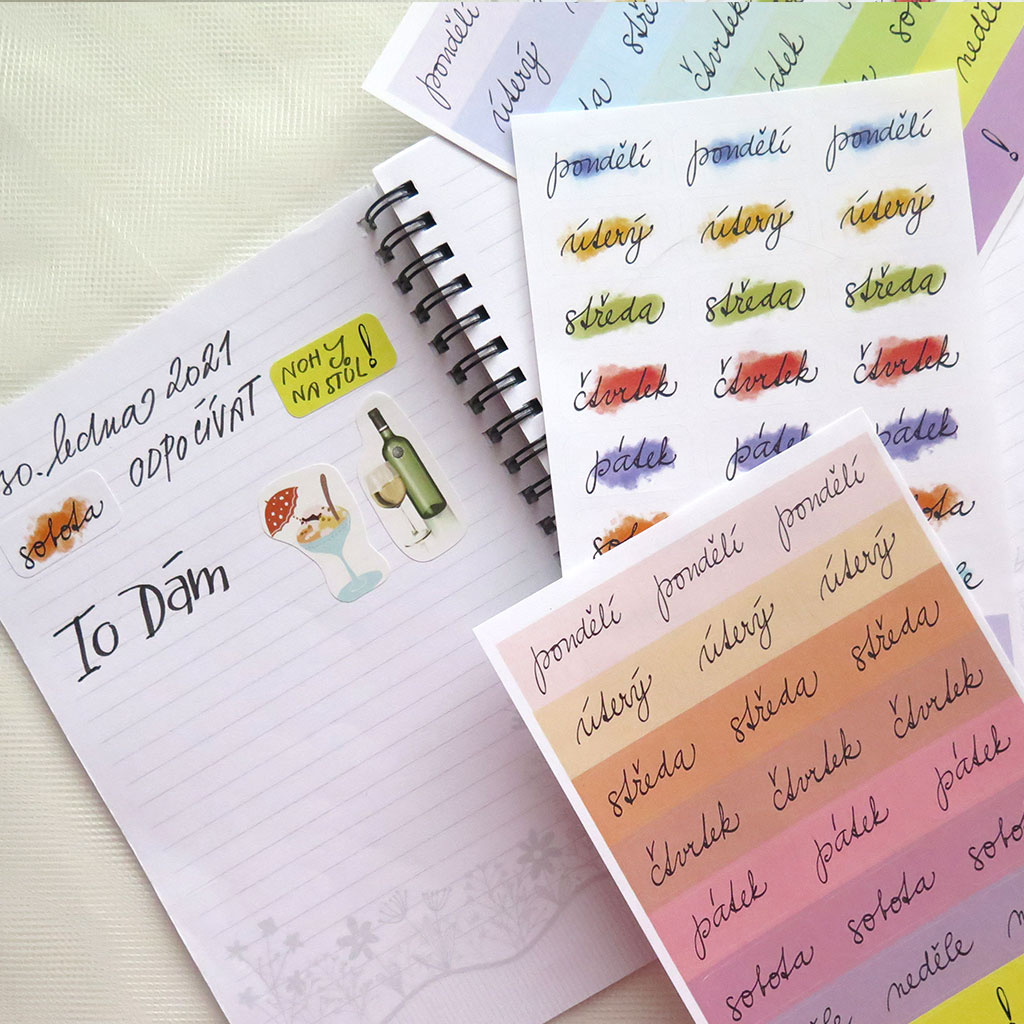 30. ledna 2021
ODPOČÍVAT
NOHY
NA STŮL!
sobota
To Dám
pondělí
úterý
stře
čtvrtek
pátek
sobo
neděle
!
pondělí pondělí pondělí
úterý úterý úterý
středa středa středa
čtvrtek čtvrtek čtvrtek
pátek pátek pátek
sobota
pondělí pondělí pondělí
úterý úterý úterý
středa středa středa
čtvrtek čtvrtek čtvrtek
pátek pátek pátek
sobota sobota sobo
neděle
!